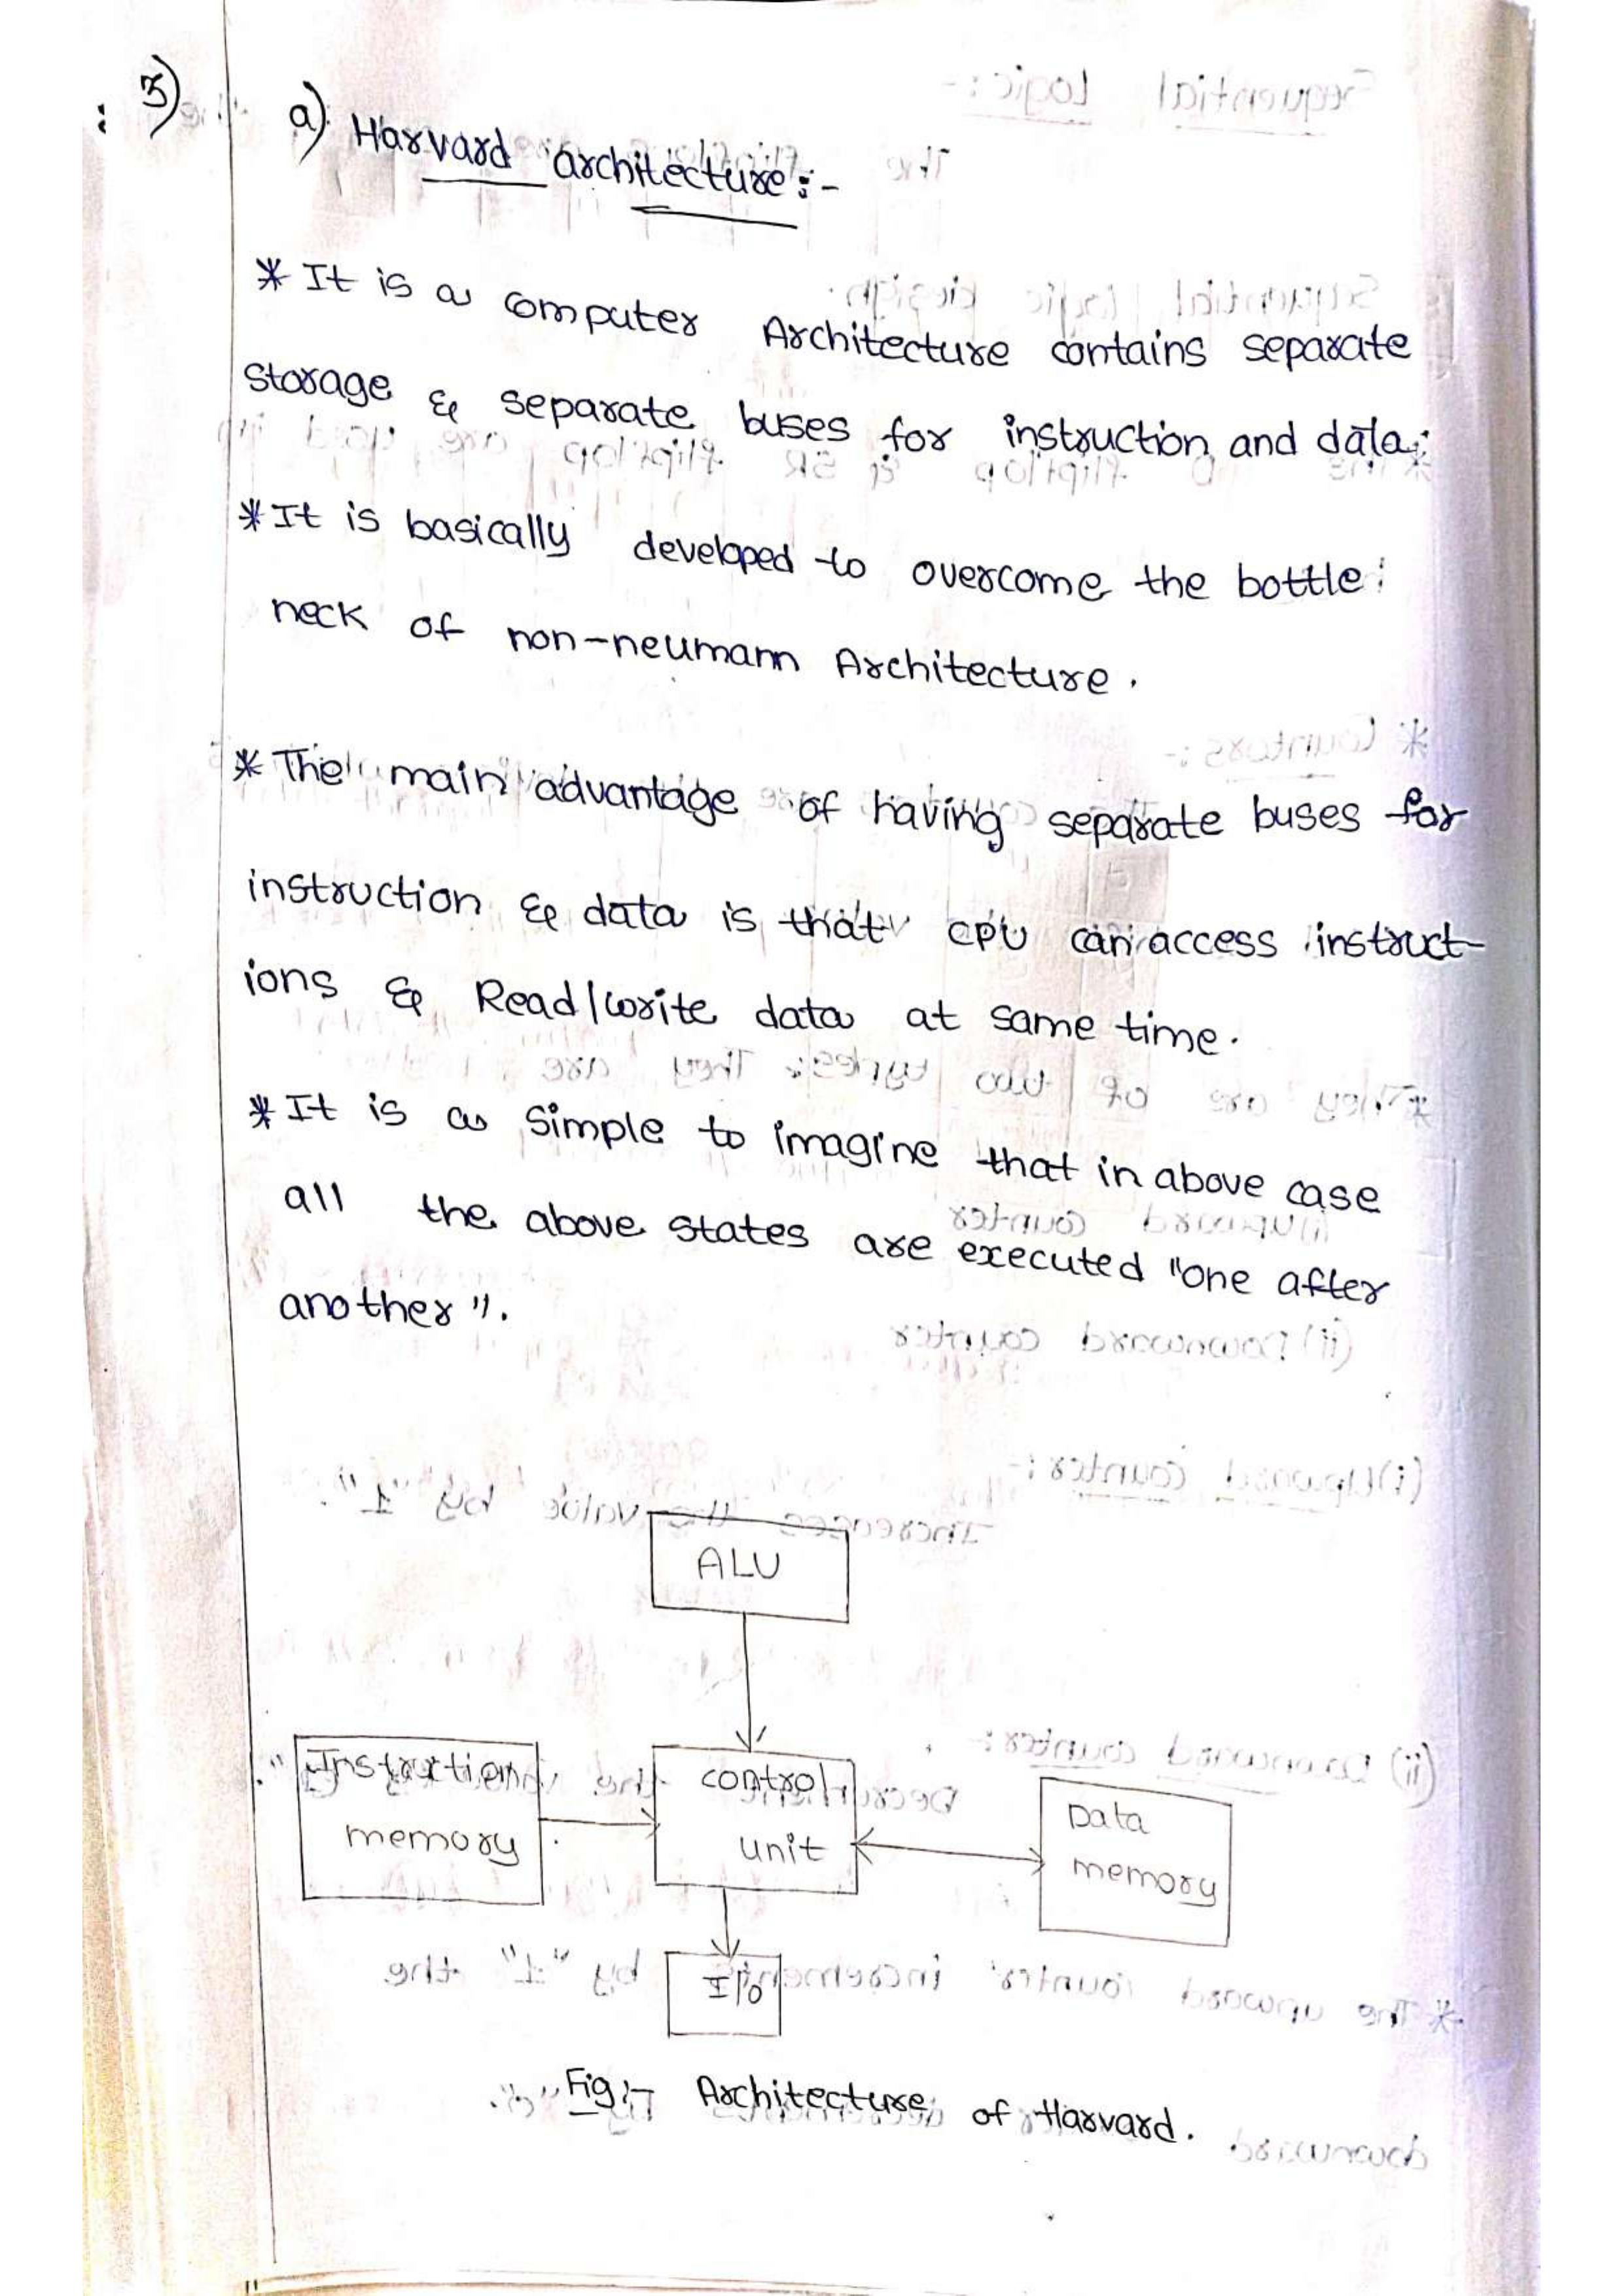 3)
a) Harvard architecture :-
* It is a computer Architecture contains separate
storage & separate buses for instruction and data.
* It is basically developed to overcome the bottle
neck of non-neumann Architecture.
* The main advantage of having separate buses for
instruction & data is that CPU can access instruct-
ions & Read/write data at same time.
* It is a simple to imagine that in above case
all the above states are executed "one after
another".
ALU
Instruction
memory
control
unit
Data
memory
I/O
Fig:- Architecture of Harvard.